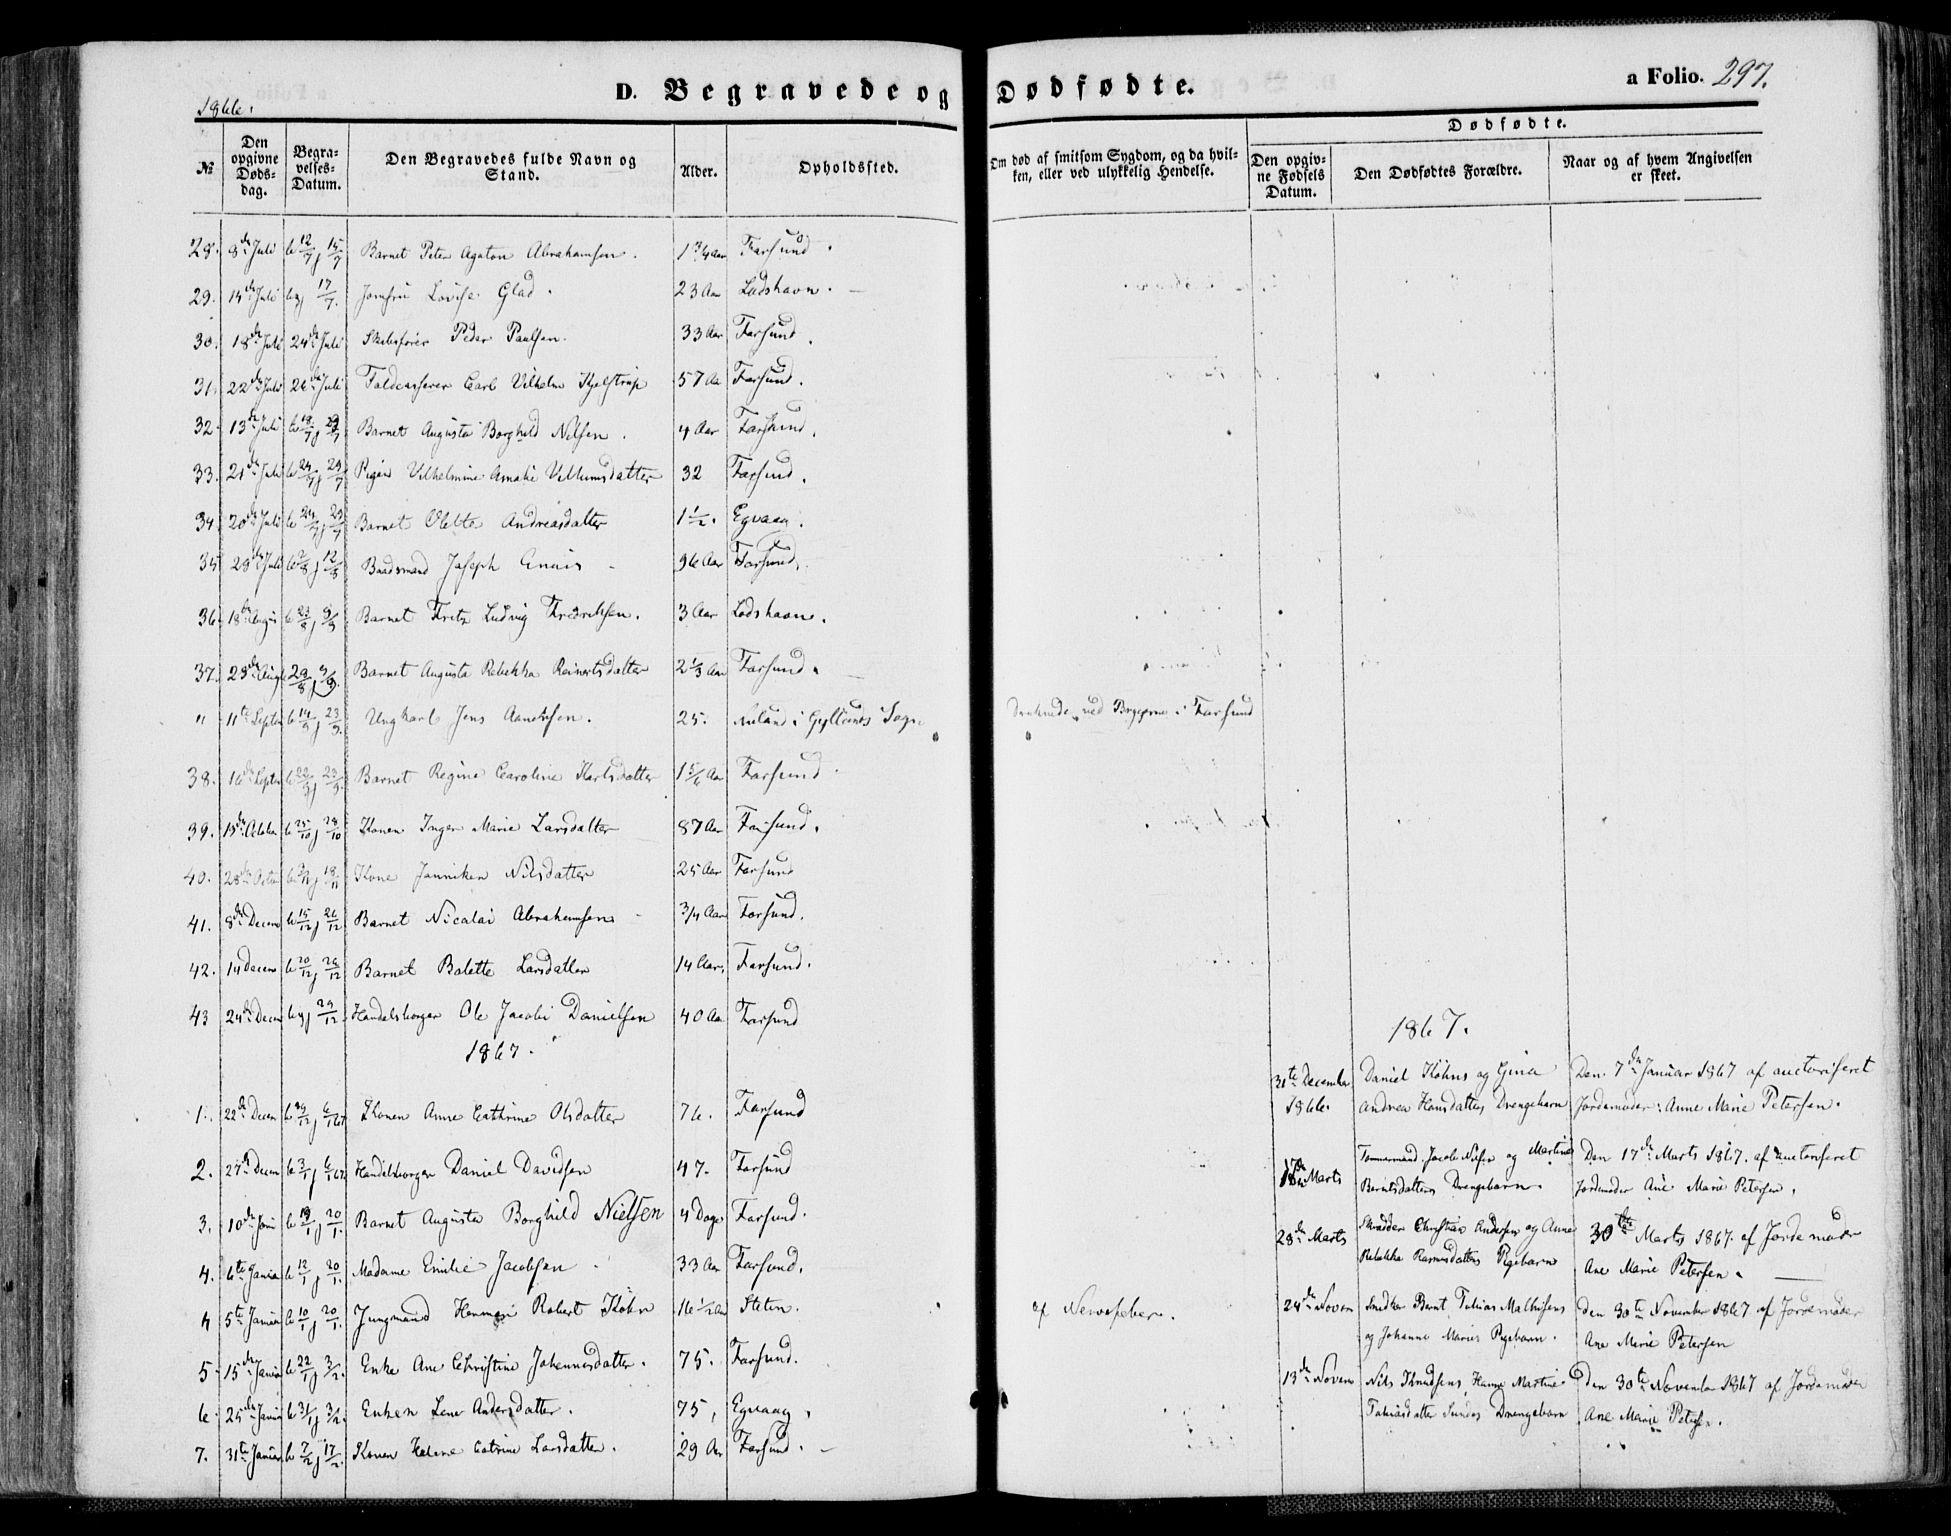 1866.
D. Begravede og Dødfødte.
a Folio. 297.
№
Den opgivne Døds-dag.
Begra-velses-Datum.
Den Begravedes fulde Navn og Stand.
Alder.
Opholdssted.
Om død af smitsom Sygdom, og da hvil-ken, eller ved ulykkelig Hendelse.
Dødfødte.
Den opgiv-ne Fødsels Datum.
Den Dødfødtes Forældre.
Naar og af hvem Angivelsen er skeet.
28. 8de Juli b 12/7 j 15/7 Barnet Peter Agaton Abrahamsen. 1 3/4 Aar Farsund.
29. 14de Juli b og j 17/7. Jomfru Lovise Glad. 23 Aar Lodshavn.
30. 18de Juli 24de Juli Skibsfører Peder Paulsen. 33 Aar Farsund.
31. 22de Juli 26de Juli Toldcasserer Carl Vilhelm Kjelstrup 57 Aa Farsund.
32. 13de Juli b 19/7 j 29/7 Barnet Augusta Borghild Nilsen. 4 Aar Farsund.
33. 21de Juli b 24/7 j 29/7 Pigen Vilhelmine Amalie Villumsdatter 32 Farsund.
34. 20de Juli b 24/7 j 29/7 Barnet Olette Andreasdatter 1 1/2. Egvaag.
35 29de Juli b 2/8 j 12/8 Baadsmand Joseph 96 Aar Farsund.
36. 18de Augus b 23/8 j 9/9 Barnet Fritz Ludvig Fredriksen. 3 Aar Lodshavn.
37. 25de Aug b 29/8 j 9/9. Barnet Augusta Rebekka Reinertsdatter 2 1/3 Aar Farsund.
" 11te Septe b 14/9 j 23/9. Ungkarl Jens Aanensen. 25. i Gyllands Sogn ved Bryggerne i Farsund
38. 16de Septe b 22/9 j 23/9. Barnet Regine Caroline Karlsdatter 1 5/6 Aar Farsund
39. 15de Octobe b 25/10 j 28/10 Konen Inger Marie Larsdatter 87 Aar Farsund.
40. 28de Octo b 3/11 j 18/11 Kone Janniken Nilsdatter 25 Aar Farsund
41. 8de Decem b 15/12 j 26/12 Barnet Nicolai Abrahamsen 3/4 Aar Farsund.
42. 14 Decem b 20/12 j 26/12 Barnet Bolette Larsdatter 14 Aar, Farsund.
43 24de Decem b og j 29/12. Handelsborger Ole Jacobi Danielsen 40 Aa Farsund
1867.
1. 22de Decem b 29/12 j 6/1 67 Konen Anne Cathrine Olsdatter 76. Farsund
2. 27de Decem b 3/1 j 6/1 67. Handelsborger Daniel Davidsen 47. Farsund
3. 10de Jani b 19/1 j 20/1. Barnet Augusta Borghild Nielsen 4 Dage Farsund.
4. 6te Janua b 12/1 j 20/1. Madame Emilie Jacobsen 33 Aar Farsund.
4 5te Janua b 10/1 j 20/1. Jungmand Herman Robert Köhn 16 1/2 Aar af Nervefeber.
5 15de Janua b 22/1 j 3/2. Enke Ane Christine Johannesdatter. 75. Farsund.
6. 25de Janua b 31/1 j 3/2. Enken Lene Andersdatter. 75, Egvaag,
7. 31te Januar b 7/2 j 17/2. Konen Helene Catrine Larsdatter. 29 Aar Farsund.
1867.
31te December 1866. Daniel Köhns og Gina Andrea Hansdatters Drengebarn
Den 7de Januar 1867 af auctoriseret Jordemoder: Anne Marie Petersen.
17de Marts Tømmermand Jacob Nilsen og Martine Berntsdatters Drengebarn.
Den 17de Marts 1867. af auctoriseret Jordemoder Ane Marie Petersen,
28de Marts Skrædder Christian Andersen og Anne Rebekka Rasmusdatters Pigebarn
30te Marts 1867. af Jordemoder Ane Marie Petersen.
24de Novem Snedker Bernt Tobias Mathisens og Johanne Maries Pigebarn.
den 30te November 1867 af Jordemoder Ane Marie Petersen
13de Novem Nils Knudsens, Hanne Martine Tobiasdatter Sundes Drengebarn
den 30te November 1867 af Jordemoder Ane Marie Petersen.